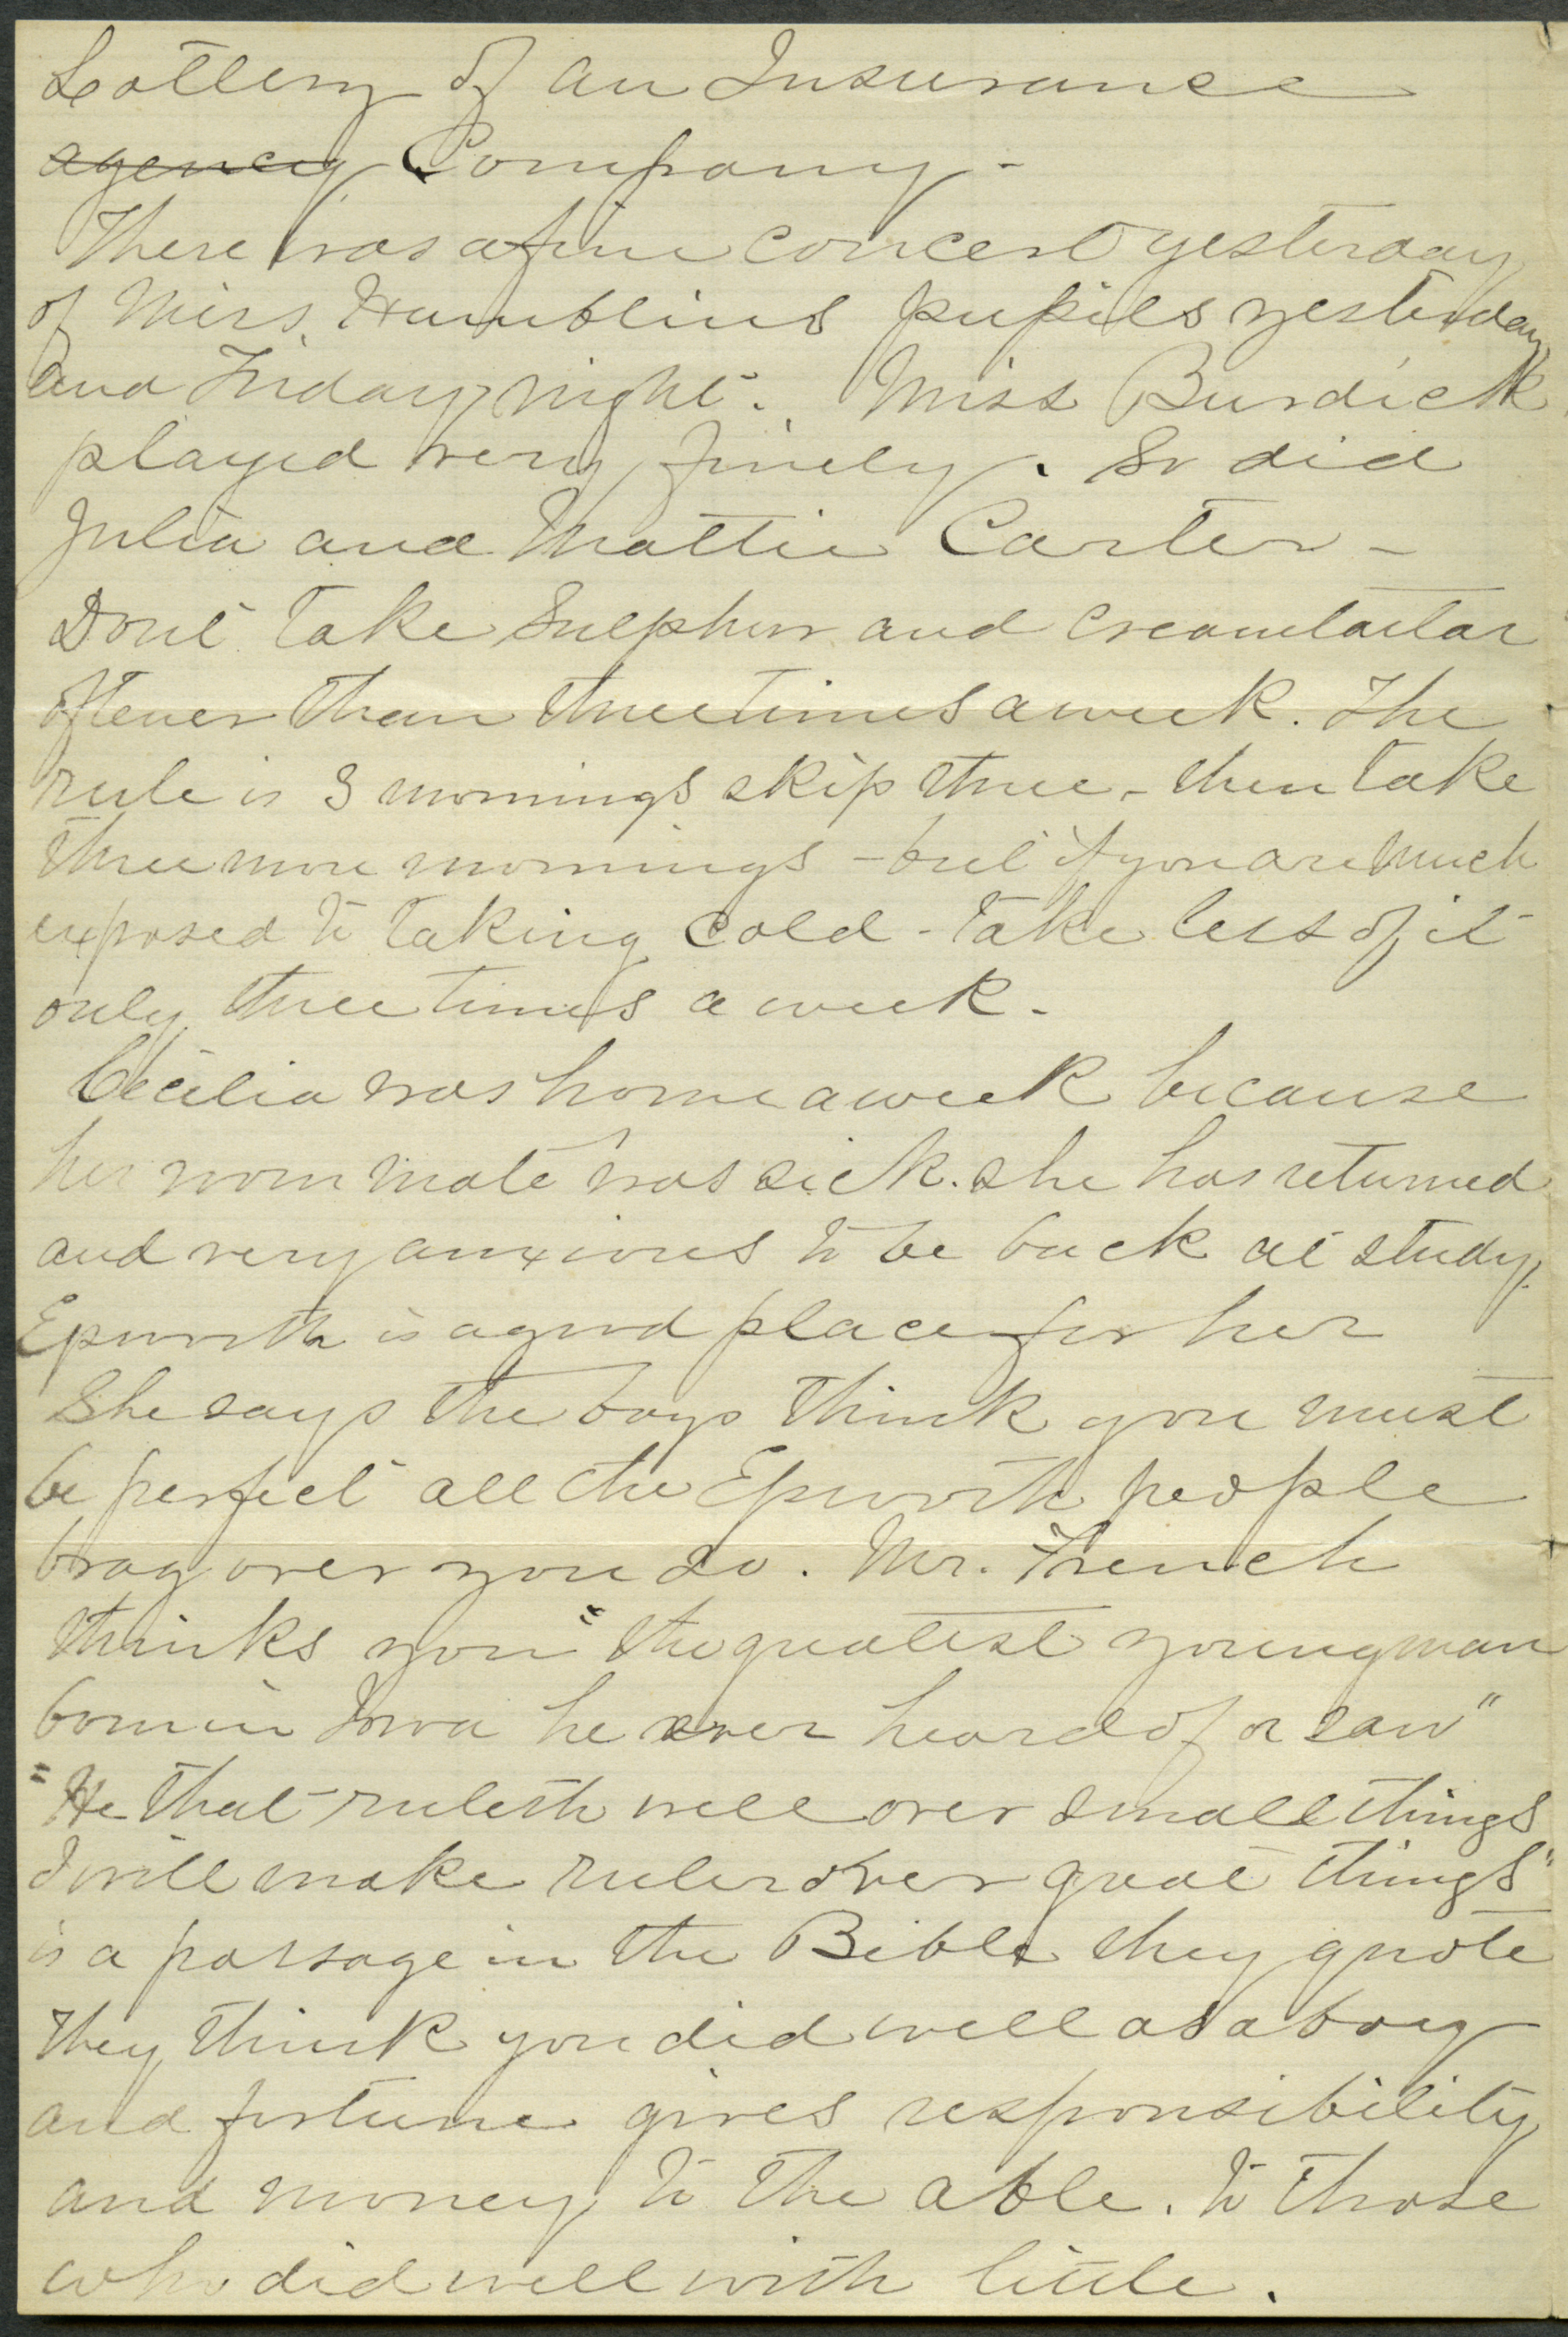 Lottery of an Insurance
agency Company -
There was a fine concert yesterday
of Miss Humblins pupils yesterday
and Friday night. Miss Burdick
played very finely. So did
Julia and Mattie Carter -
Dont take Sulphur and creamtartar
oftener than three times a week. The
rule is 3 mornings skip three - then take
three more mornings - but if you are much
exposed to taking cold - take less of it
only three times a week.
Cecilia was home a week because
her room mate was sick. she has returned
and very anxious to be back at study.
Epworth is a good place for her
She says the boys think you must
be perfect all the Epworth people
brag over you so. Mr. French
thinks you "the greatest young man
born in Iowa he ever heard of or saw"
"He that ruleth well over small things
I will make ruler over great things"
is a passage in the Bible they quote
they think you did well as a boy
and fortune gives responsibility
and money to the able. to those
who did well with little.